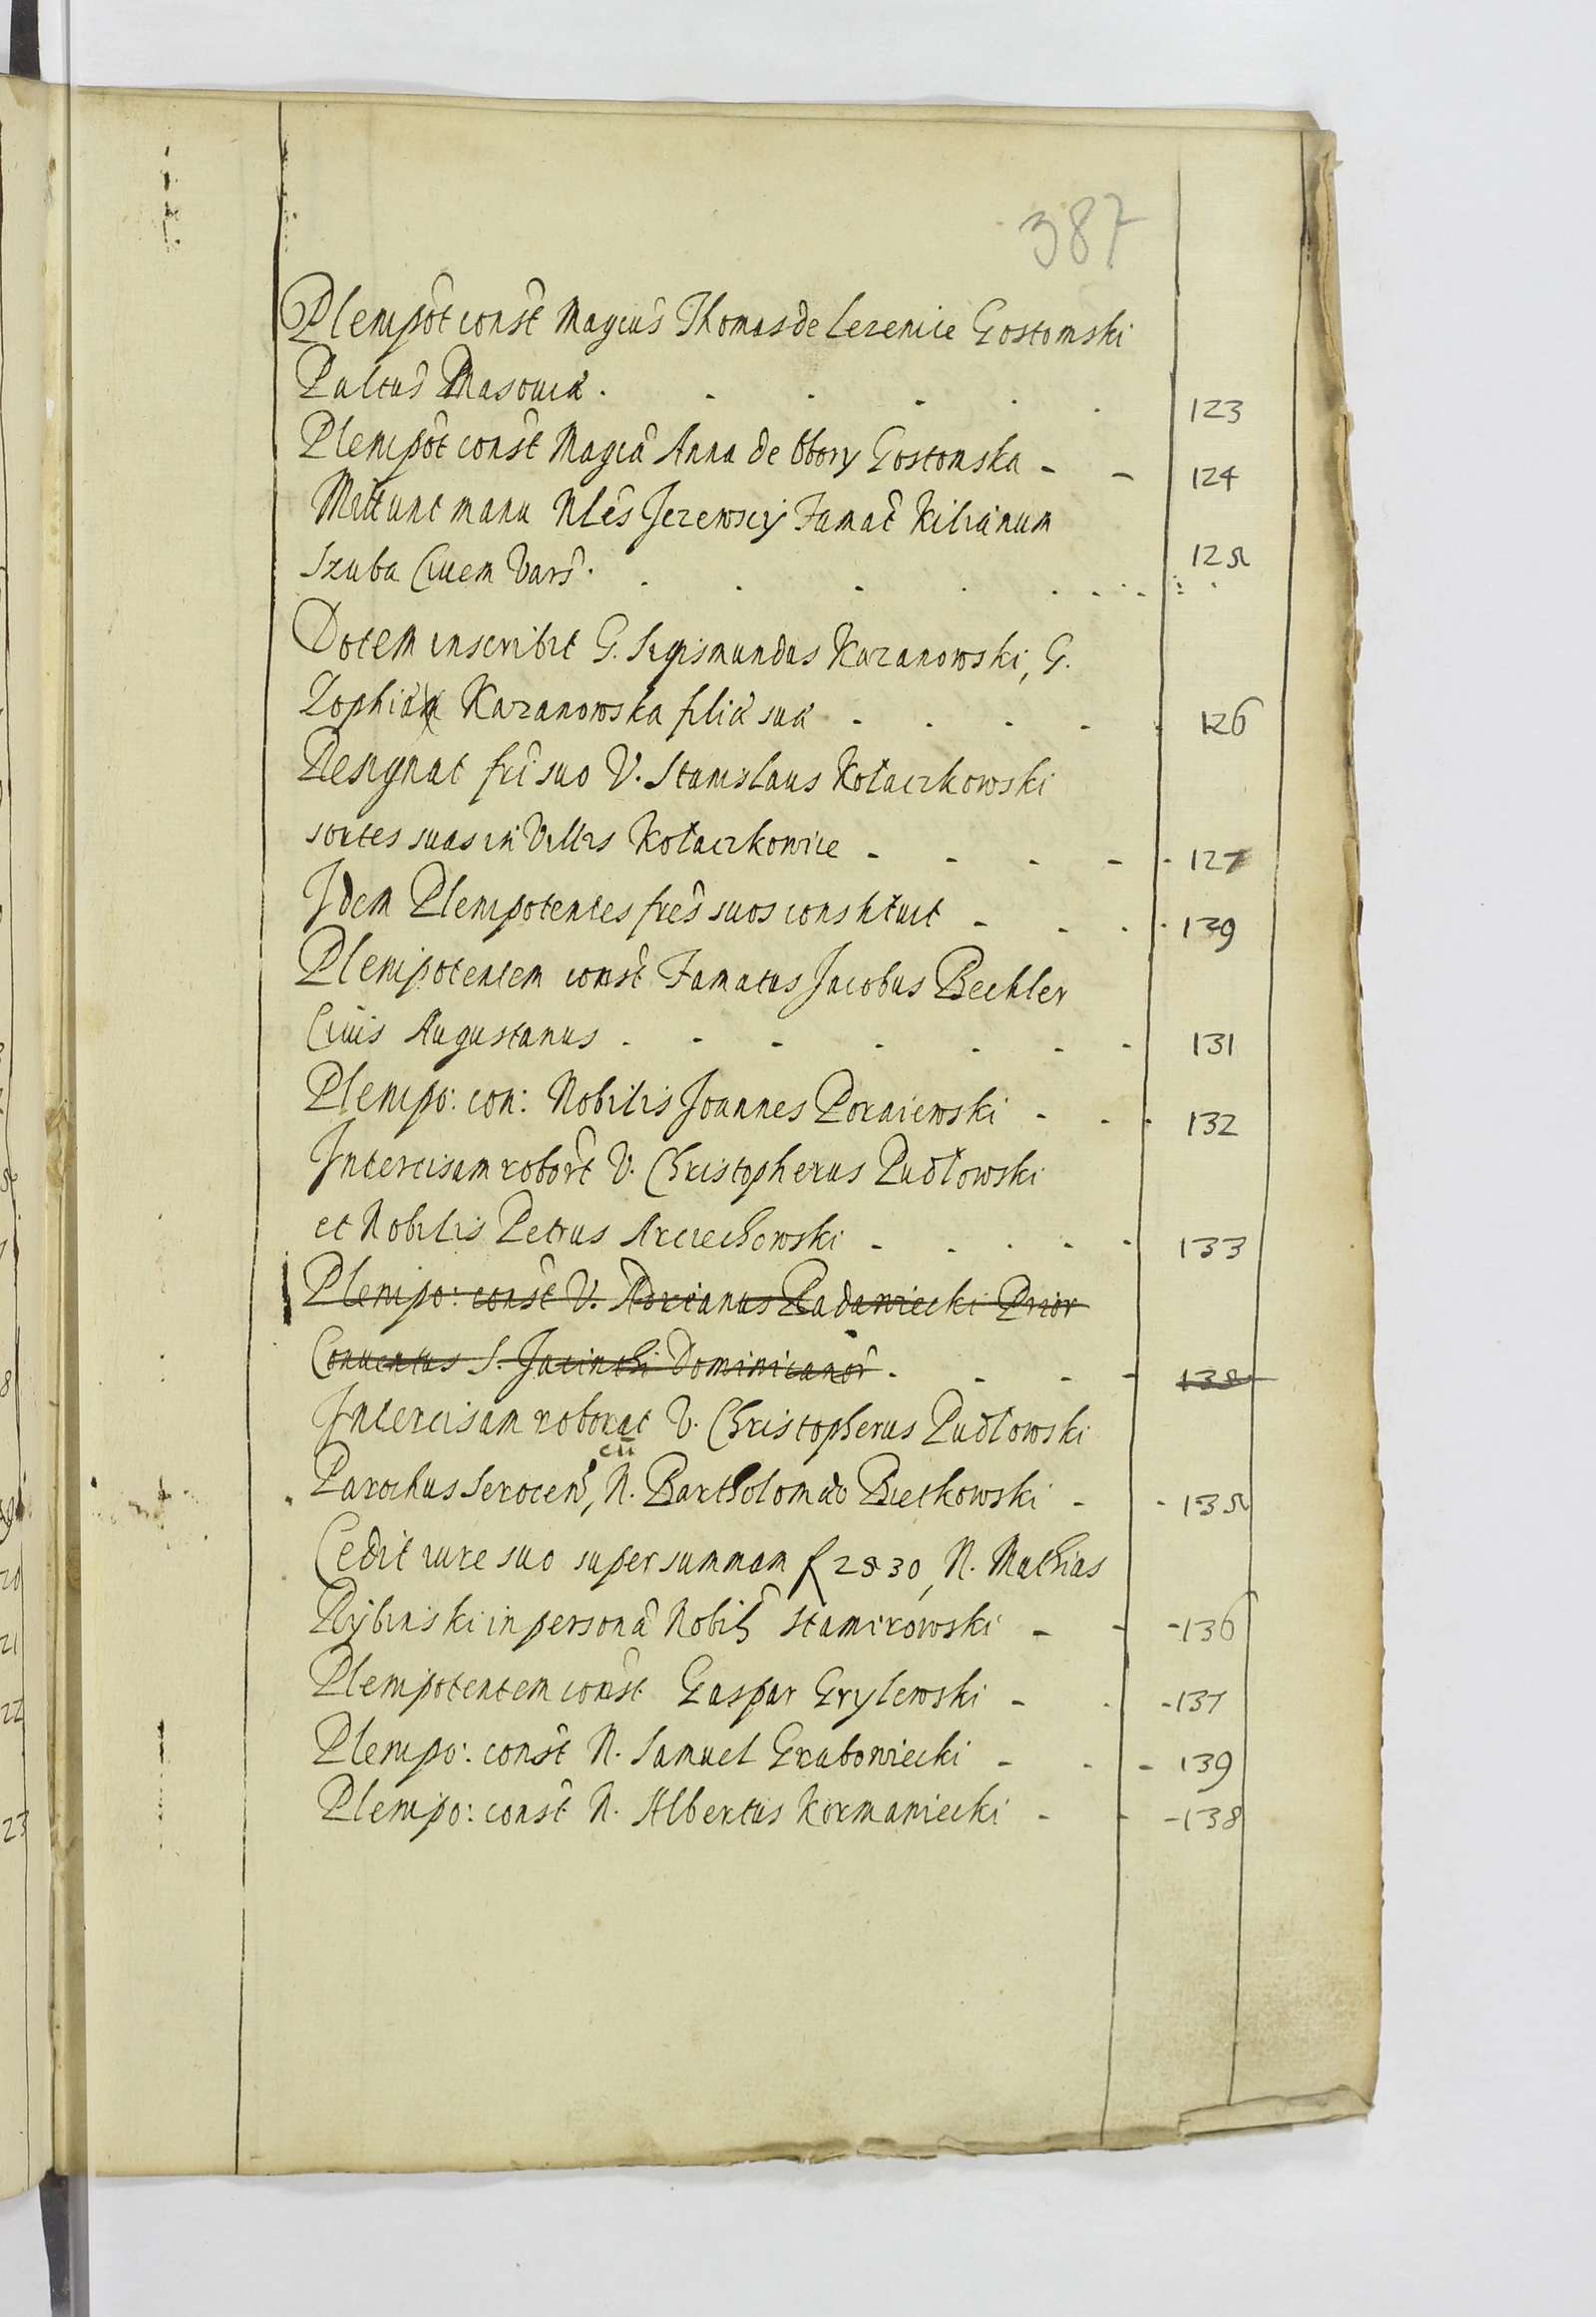 387
Plenipot const Magcus Thomas de Lezenice Gostomski
Paltus Masouiæ . . . . . . 123
Plenipot const Magca Anna de Obory Gostomska - - 124
Mittunt manu Nles Jezewscy Famat Kilianum
Szuba Ciuem Vars . . . . . . 125
Dotem inscribit G. Sigismundus Kazanowski, G.
Zophiæ Kazanowska filiæ suæ . . . . . 126
Resignat fri suo V. Stanislaus Kołaczkowski
sortes suas in Villis Kołaczkowice - - - - - 127
Idem Plenipotentes fres suos constituit - . . . 129
Plenipotentem const Famatus Jacobus Bechler
Ciuis Augustanus . - - - - - - 131
Plenipo: con: Nobilis Joannes Poraiewski - - - 132
Intercisam robort V. Christopherus Pudłowski
et Nobilis Petrus Arciechowski - - - - - 133
Plenipo: const V. Adrianus Radawiecki Prior
Conuentus S. Jacinthi Dominicanor . - - - 135
Intercisam roborat V. Christopherus Pudłowski
Parochus Serocen, cū N. Bartholomæo Bietkowski - - 135
Cedit iure suo super summam f 2830, N. Mathias
Rybinski in persona Nobil Stamirowski - - - 136
Plenipotentem const Gaspar Grylewski - - - 137
Plenipo: const N. Samuel Grabowiecki - - - 139
Plenipo: const N. Albertus Kormaniecki - - - 138